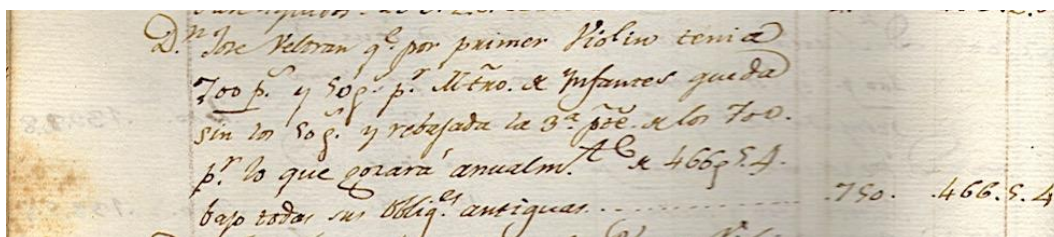 D.n Jose Veltran q.e por primer Violin tenia
700 p.s y 50 p.s p.r Mtrõ. de Infantes queda
sin los 50 p.s y rebajada la 3.a ptẽ. de los 700.
p.r lo que gozará anualm.te de 466 p.s 5.4.
bajo todas sus obligs. antiguas . . . . . . . . . . . 750. .466.5.4